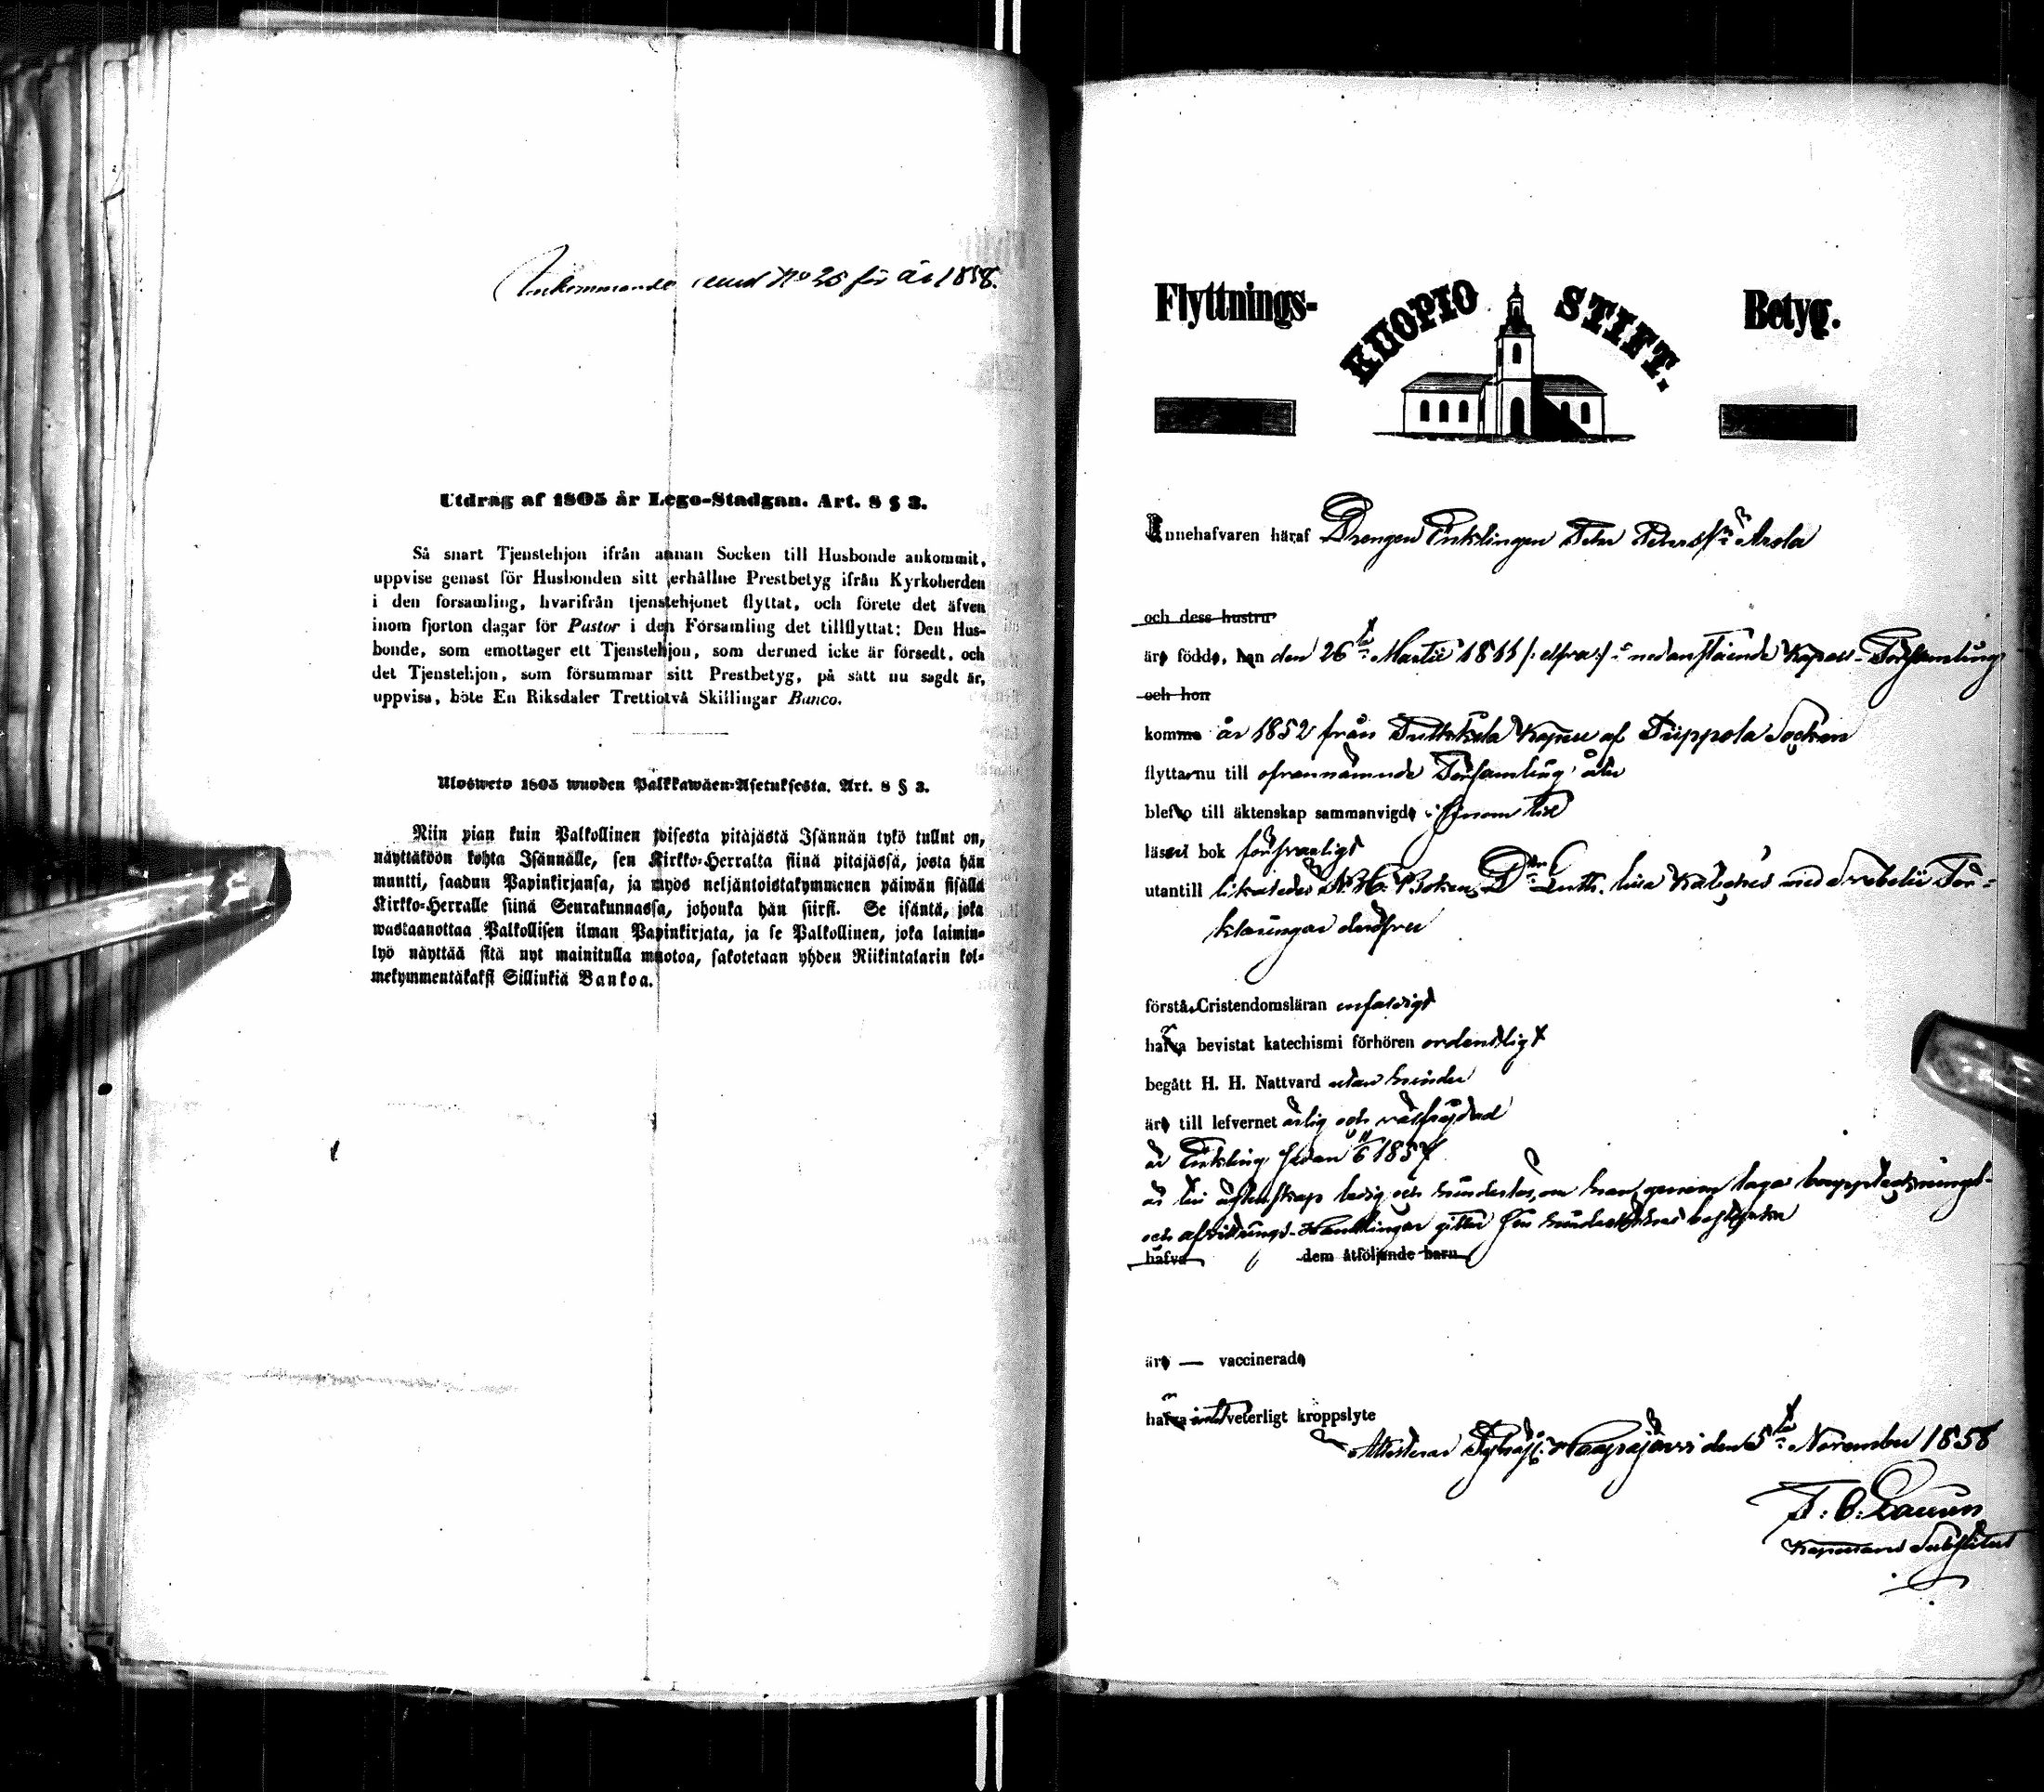 Inkommande med No 26 för år 1858.
Utdrag af 1805 år Lego-Stadgan. Art. 8 § 3.
Så snart Tjenstehjon ifrån annan Socken till Husbonde ankommit,
uppvise genast för Husbonden sitt erhållne Prestbetyg ifrån Kyrkoherden
i den forsamling, hvarifrån tjenstehjonet flyttat, och förete det äfven
inom fjorton dagar för Pastor i den Församling det tillflyttat: Den Hus-
bonde, som emottager ett Tjenstehjon, som dermed icke är försedt, och
det Tjenstehjon, som försummar sitt Prestbetyg, på sätt nu sagdt är,
uppvisa, böte En Riksdaler Trettiotvå Skillingar Banco.
Ulosweto 1805 wuoden Palkkawäen-Asetuksesta. Art. 8 § 3.
Niin pian kuin Palkollinen toisesta pitäjästä Isännän tykö tullut on,
näyttäköön kohta Isännälle, sen Kirkko-Herralta siinä pitäjässä, josta hän
muutti, saadun Papinkirjansa, ja myös neljäntoistakymmenen päiwän sisällä
Kirkko-Herralle siinä Seurakunnassa, johonka hän siirsi. Se isäntä, joka
wastaanottaa Palkollisen ilman Papinkirjata, ja se Palkollinen, joka laimin-
lyö näyttää sitä nyt mainitulla muotoa, sakotetaan yhden Riikintalarin kol-
mekymmentäkaksi Sillinkiä Bankoa.
Flyttnings- KUOPIO STIFT. Betyg.
Innehafvaren häraf Drengen Enklingen Petter Arola
och dess hustru
äro födde, han den 26te Martii 1811 nedanstående Kapell-Församling
och hon
komme år 1852 från Kapell af Piippola Socken
flyttar nu till ofvannämnde Församling åter
blefvo till äktenskap sammanvigde
läser i bok försvarligt
utantill likaledes A.B.C. Boken, Dr Luth. lilla Kateches med Svebelii För-
klaringar deröfver
förstå Cristendomsläran enfaldigt
hafva bevistat katechismi förhören ordentligt
begått H. H. Nattvard utan hinder
äro till lefvernet ärlig och välfrejdad
är Enkling sedan 1857
är till äktenskap ledig och hinderlös, om han genom laga bouppteknings-
och afvittrings-Handlingar gitter sin hinderlöshet bestyrka
hafva dem åtföljande barn
äro — vaccinerade
hafva intet veterligt kroppslyte
Attesterar Haapajärvi den 5te November 1858
Kapellans Substitut